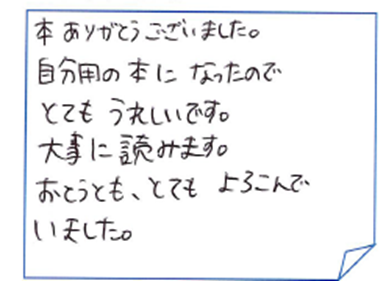 本ありがとうございました。
自分用の本に なったので
とても うれしいです。
大事に読みます。
おとうとも、とても よろこんで
いました。